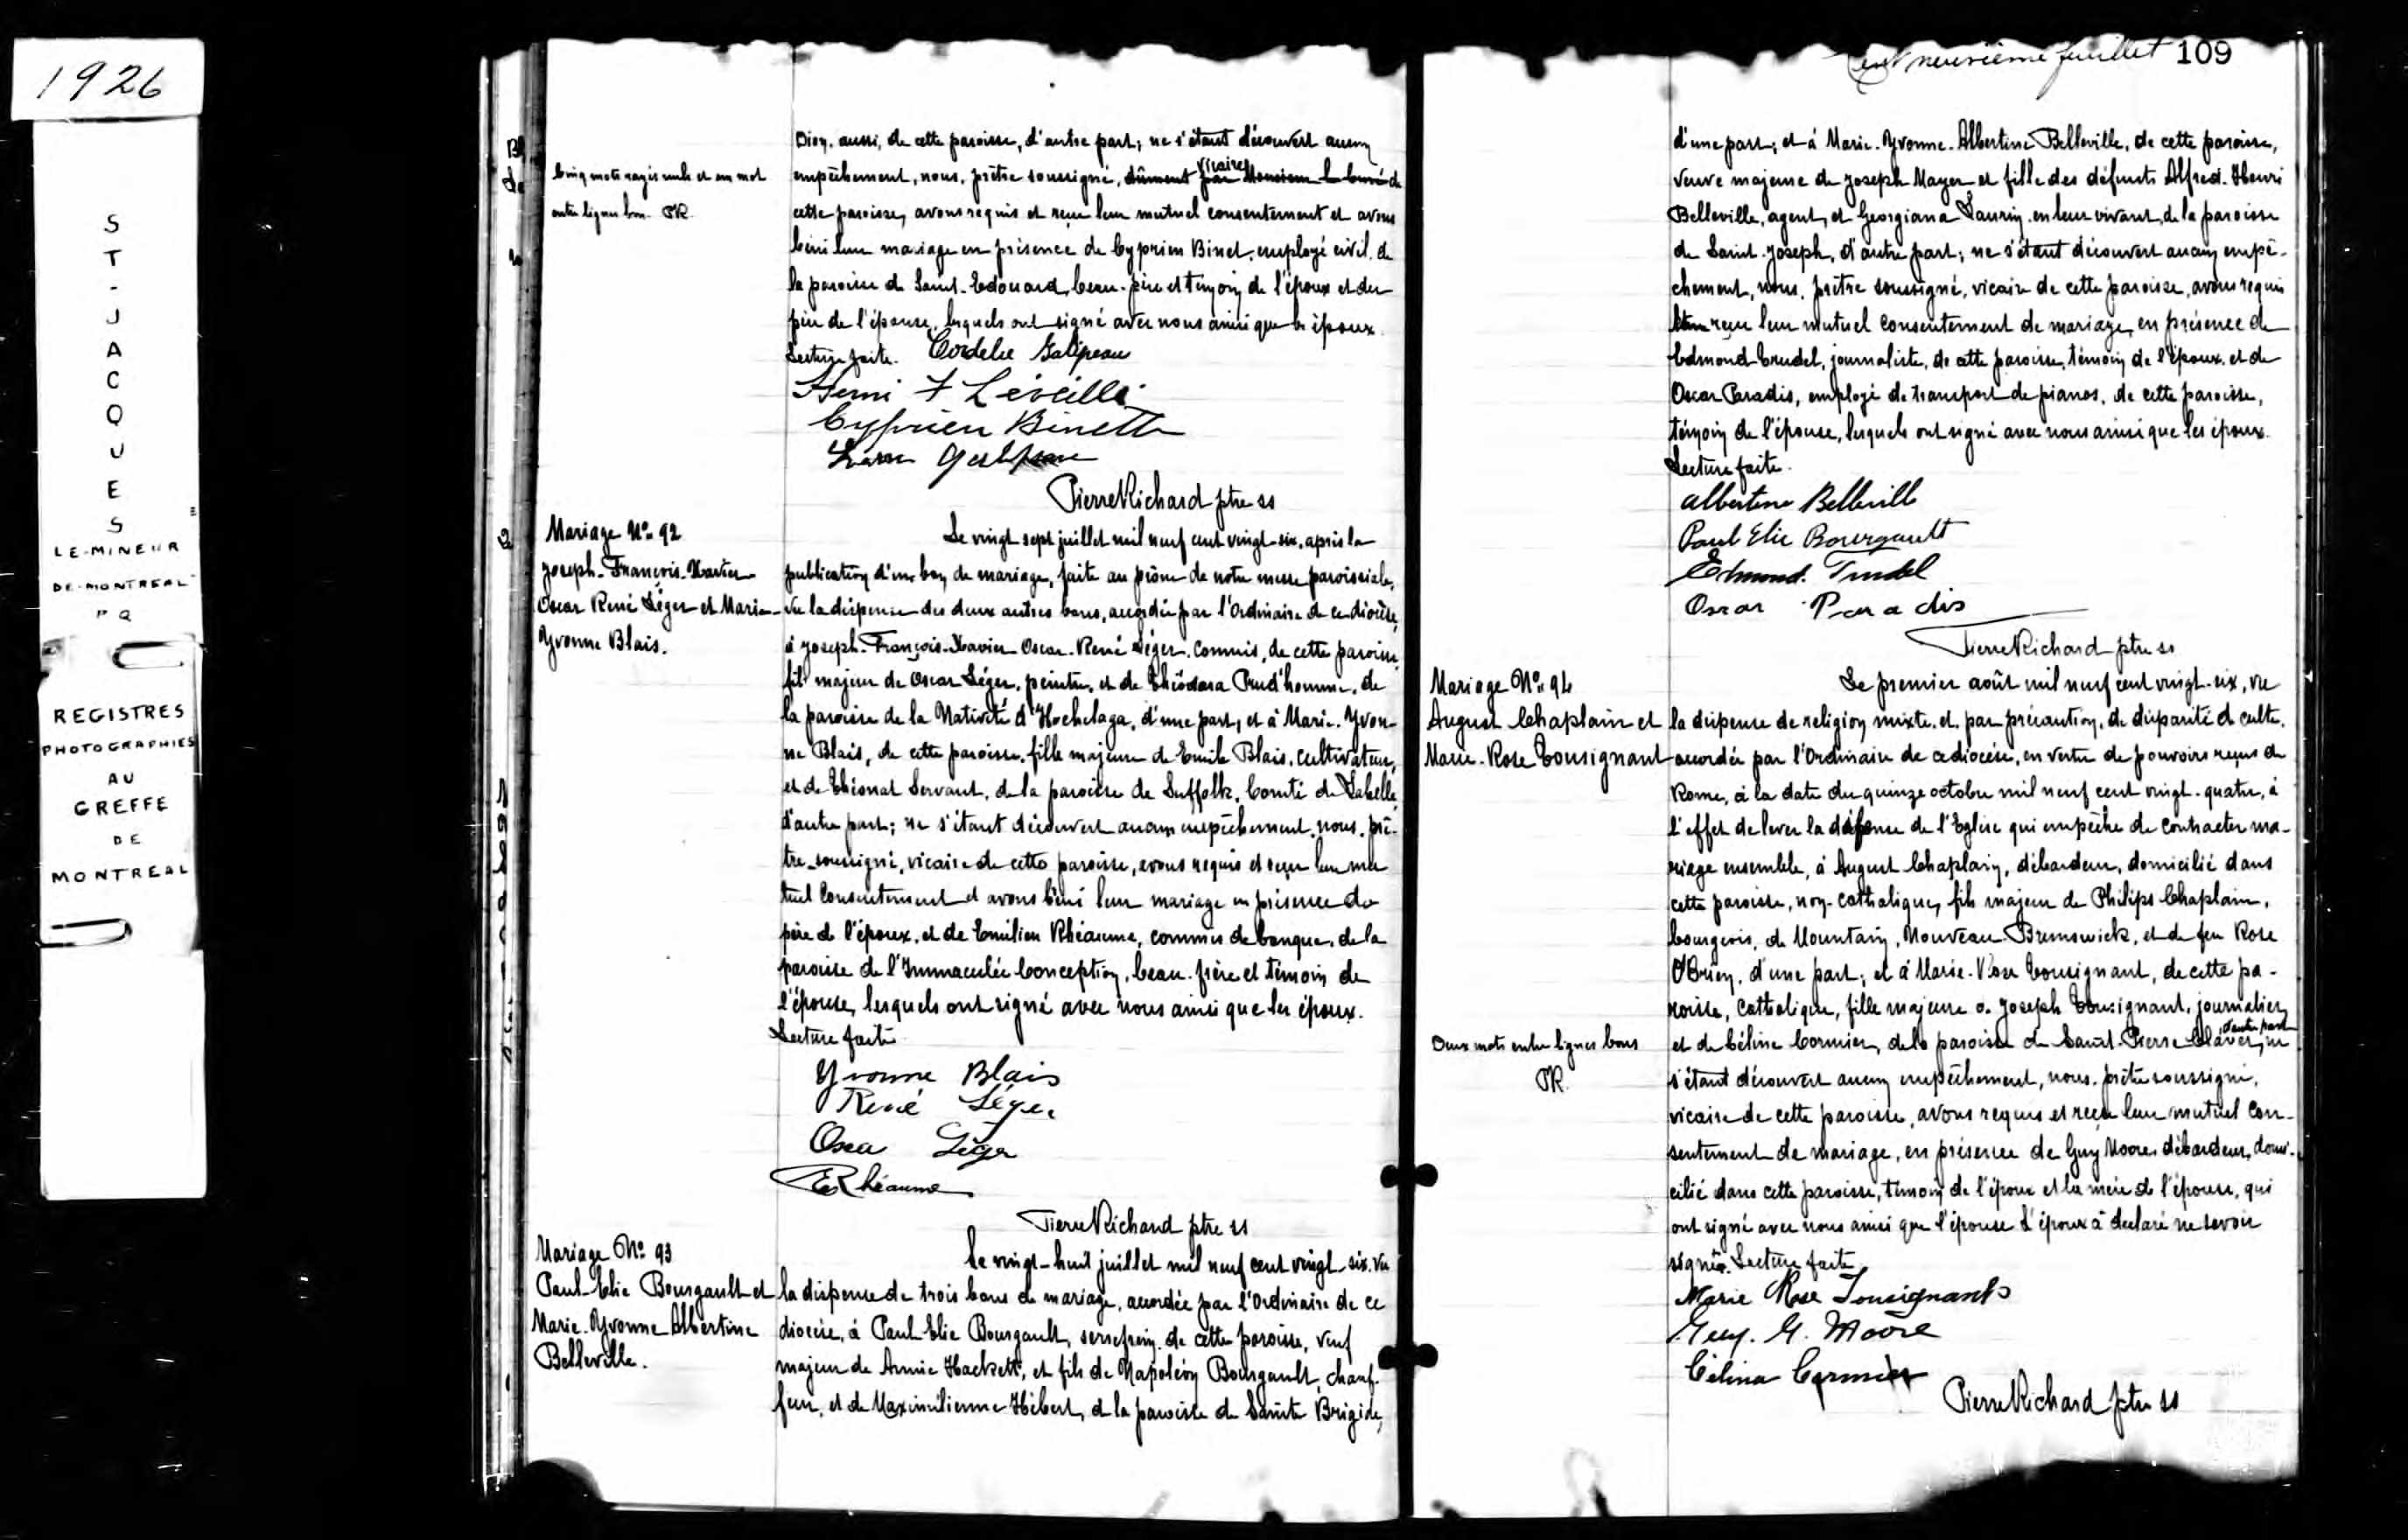 1926
ST-JACQUES
LE-MINEUR
DE-MONTREAL
P Q
REGISTRES
PHOTOGRAPHIES
AU
GREFFE
DE
MONTREAL
Cinq mots rayés nuls et un mot
entre lignes bon. PR.
Dion, aussi, de cette paroisse, d'autre part; ne s'étant découvert aucun
empêchement, nous, prêtre soussigné, dûment par Monsieur le Curé vicaire de
cette paroisse, avons requis et reçu leur mutuel consentement et avons
béni leur mariage en présence de Cyprien Binet, employé civil, de
la paroisse de Saint-Edouard, beau-père et témoin de l'époux et du
père de l'épouse, lesquels ont signé avec nous ainsi que les époux.
Lecture faite. Cordelie Galipeau
Henri F Léveillé
Cyprien Binette
Pierre Richard ptre ss
Mariage No 92
Joseph-François-Xavier
Oscar René Léger et Marie
Yvonne Blais.
Le vingt sept juillet mil neuf cent vingt-six, après la
publication d'un ban de mariage, faite au prône de notre messe paroissiale,
vu la dispense des deux autres bans, accordée par l'Ordinaire de ce diocèse,
à Joseph-François-Xavier Oscar-René Léger, commis, de cette paroisse,
fils majeur de Oscar Léger, peintre, et de Théodora Prud'homme, de
la paroisse de la Nativité d'Hochelaga, d'une part, et à Marie-Yvon-
ne Blais, de cette paroisse, fille majeure de Emile Blais, cultivateur,
et de Servant, de la paroisse de Suffolk, Comté de Labelle,
d'autre part; ne s'étant découvert aucun empêchement, nous, prê-
tre soussigné, vicaire de cette paroisse, avons requis et reçu leur mu
tuel consentement et avons béni leur mariage en présence du
père de l'époux, et de Emilien Rhéaume, commis de banque, de la
paroisse de l'Immaculée Conception, beau-frère et témoin de
l'épouse, lesquels ont signé avec nous ainsi que les époux.
Lecture faite
Yvonne Blais
René Léger
Oscar Léger
E Rhéaume
Pierre Richard ptre ss
Mariage No 93
Paul-Elie Bourgault et
Marie-Yvonne Albertine
Belleville.
Le vingt-huit juillet mil neuf cent vingt-six, vu
la dispense de trois bans de mariage, accordée par l'Ordinaire de ce
diocèse, à Paul Elie Bourgault, serrefrein, de cette paroisse, veuf
majeur de Annie Hackett, et fils de Napoléon Bourgault, chauf-
feur, et de Maximilienne Hébert, de la paroisse de Sainte Brigide,
Cent neuvième feuillet 109
d'une part; et à Marie-Yvonne-Albertine Belleville, de cette paroisse,
veuve majeure de Joseph Mayer et fille des défunts Alfred-Henri
Belleville, agent, et Georgiana Laurin, en leur vivant, de la paroisse
de Saint-Joseph, d'autre part; ne s'étant découvert aucun empê-
chement, nous, prêtre soussigné, vicaire de cette paroisse, avons requis
et reçu leur mutuel consentement de mariage, en présence de
Edmond Trudel, journaliste, de cette paroisse, témoin de l'époux et de
Oscar Paradis, employé de transport de pianos, de cette paroisse,
témoin de l'épouse, lesquels ont signé avec nous ainsi que les époux.
Lecture faite.
Albertine Belleville
Paul Elie Bourgault
Edmond Trudel
Oscar Paradis
Pierre Richard ptre ss
Mariage No 94
August Chaplain et
Marie-Rose Tousignant
Le premier août mil neuf cent vingt-six, vu
la dispense de religion mixte et, par précaution, de disparité de culte,
accordée par l'Ordinaire de ce diocèse, en vertu de pouvoirs reçus de
Rome, à la date du quinze octobre mil neuf cent vingt-quatre, à
l'effet de lever la défense de l'Eglise qui empêche de contracter ma-
riage ensemble, à August Chaplain, débardeur, domicilié dans
cette paroisse, non-catholique, fils majeur de Philips Chaplain,
bourgeois, de Mountain, Nouveau-Brunswick, et de feu Rose
O'Brien, d'une part; et à Marie-Rose Tousignant, de cette pa-
roisse, catholique, fille majeure de Joseph Tousignant, journalier,
et de Céline Cormier, de la paroisse de Saint-Pierre Claver, d'autre part ne
Deux mots entre lignes bons
PR.
s'étant découvert aucun empêchement, nous, prêtre soussigné,
vicaire de cette paroisse, avons requis et reçu leur mutuel con-
sentement de mariage, en présence de Guy Moore, débardeur, domi-
cilié dans cette paroisse, témoin de l'époux et la mère de l'épouse, qui
ont signé avec nous ainsi que l'épouse L'époux a déclaré ne savoir
signer. Lecture faite
Marie Rose Tousignant
Guy. G. Moore
Célina Cormier
Pierre Richard ptre ss